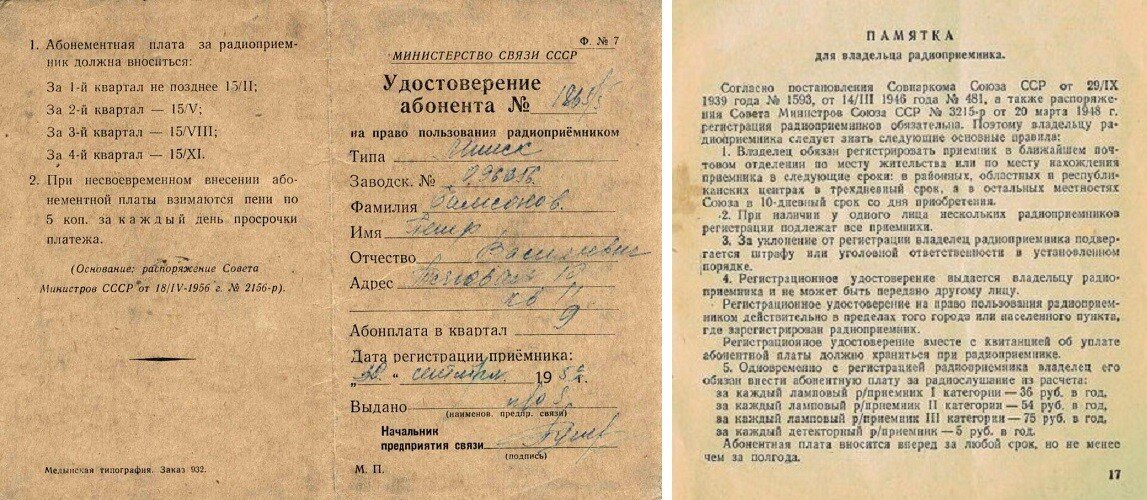 1. Абонементная плата за радиоприем-
ник должна вноситься:
За 1-й квартал не позднее 15/II;
За 2-й квартал — 15/V;
За 3-й квартал — 15/VIII;
За 4-й квартал — 15/XI.
2. При несвоевременном внесении або-
нементной платы взимаются пени по
5 коп. за каждый день просрочки
платежа.
(Основание: распоряжение Совета
Министров СССР от 18/IV-1956 г. № 2156-р).
Медынская типография. Заказ 932.
Ф. № 7
МИНИСТЕРСТВО СВЯЗИ СССР
Удостоверение
абонента №
на право пользования радиоприёмником
Типа Минск
Заводск. №
Фамилия Самсонов
Имя Петр
Отчество Васильевич
Адрес
кв 11
Абонплата в квартал 9
Дата регистрации приёмника:
„30“ сентября 195 г.
Выдано
(наименов. предпр. связи)
Начальник
предприятия связи
(подпись)
М. П.
ПАМЯТКА
для владельца радиоприемника.
Согласно постановления Совнаркома Союза ССР от 29/IX
1939 года № 1593, от 14/III 1946 года № 481, а также распоряже-
ния Совета Министров Союза ССР № 3215-р от 20 марта 1948 г.
регистрация радиоприемников обязательна. Поэтому владельцу ра-
диоприемника следует знать следующие основные правила:
1. Владелец обязан регистрировать приемник в ближайшем поч-
товом отделении по месту жительства или по месту нахождения
приемника в следующие сроки: в районных, областных и республи-
канских центрах в трехдневный срок, а в остальных местностях
Союза в 10-дневный срок со дня приобретения.
2. При наличии у одного лица нескольких радиоприемников
регистрации подлежат все приемники.
3. За уклонение от регистрации владелец радиоприемника подвер-
гается штрафу или уголовной ответственности в установленном
порядке.
4. Регистрационное удостоверение выдается владельцу радио-
приемника и не может быть передано другому лицу.
Регистрационное удостоверение на право пользования радиоприем-
ником действительно в пределах того города или населенного пункта,
где зарегистрирован радиоприемник.
Регистрационное удостоверение вместе с квитанцией об уплате
абонентной платы должно храниться при радиоприемнике.
5. Одновременно с регистрацией радиоприемника владелец его
обязан внести абонентную плату за радиослушание из расчета:
за каждый ламповый р/приемник I категории — 36 руб. в год,
за каждый ламповый р/приемник II категории — 54 руб. в год,
за каждый ламповый р/приемник III категории — 75 руб. в год,
за каждый детекторный р/приемник — 5 руб. в год.
Абонентная плата вносится вперед за любой срок, но не менее
чем за полгода.
17